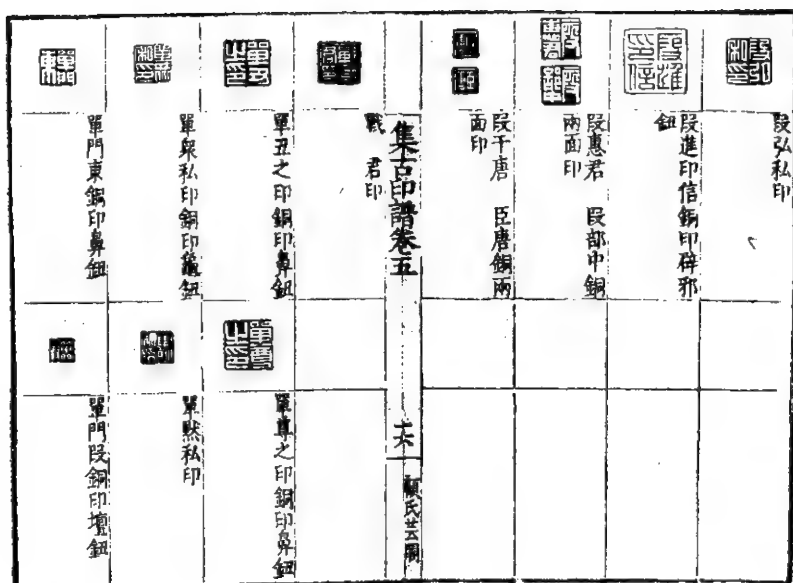 段弘私印
段進印信銅印辟邪
鈕
段惠君 段部中銅
兩面印
段干唐 臣唐銅兩
面印
集古印譜卷五
十六
顧氏芸閣
戰 君印
單丑之印銅印鼻鈕
單尊之印銅印鼻鈕
單衆私印銅印龜鈕
單默私印
單門東銅印鼻鈕
單門段銅印壇鈕